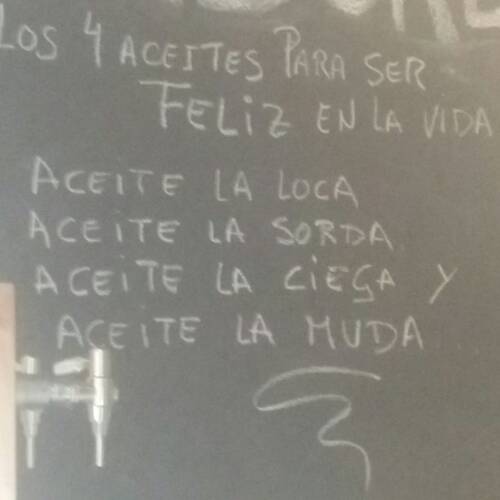 LOS 4 ACEITES PARA SER
FELIZ EN LA VIDA
ACEITE LA LOCA
ACEITE LA SORDA
ACEITE LA CIEGA Y
ACEITE LA MUDA